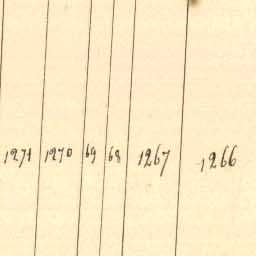 1271 1270 69 68 1267 1266